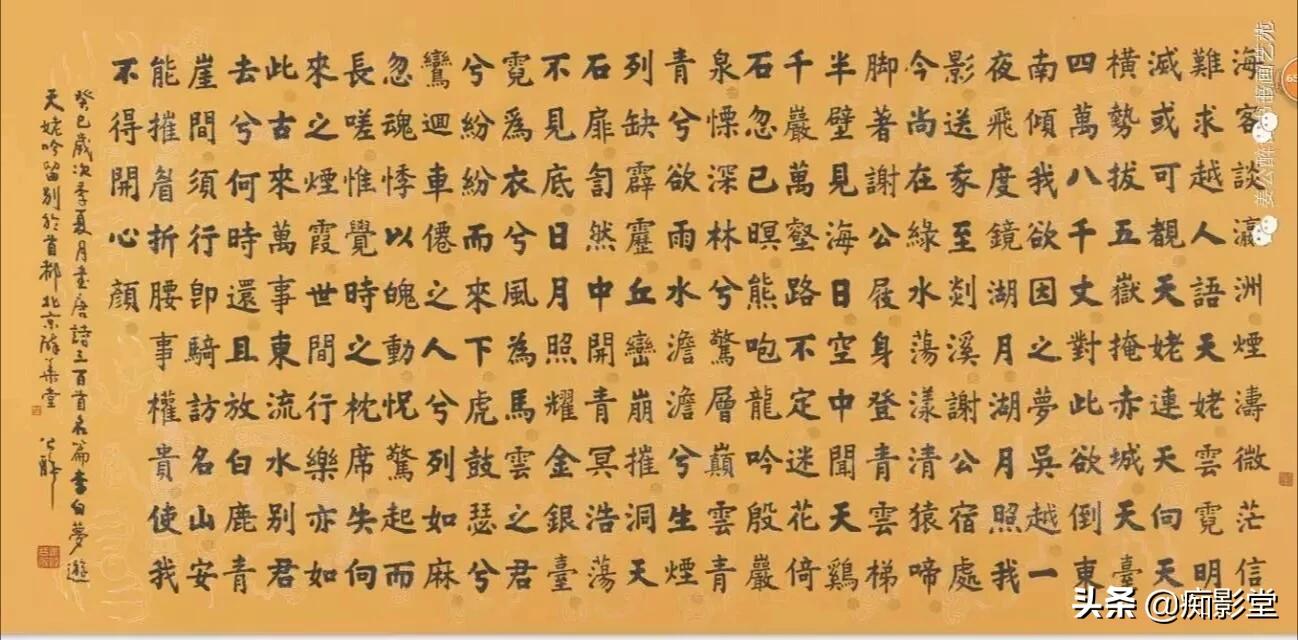 海客談瀛洲煙濤微茫信
難求越人語天姥雲霓明
滅或可覩天姥連天向天
橫勢拔五嶽掩赤城天臺
四萬八千丈對此欲倒東
南傾我欲因之夢吳越一
夜飛度鏡湖月湖月照我
影送豕至剡溪謝公宿處
今尚在綠水蕩漾清猿啼
脚著謝公屐身登青雲梯
半壁見海日空中聞天鷄
千巖萬壑路不定迷花倚
石忽已暝熊咆龍吟殷巖
泉慄深林兮驚層巔雲青
青兮欲雨水澹澹兮生煙
列缺霹靂丘巒崩摧洞天
石扉訇然中開青冥浩蕩
不見底日月照耀金銀臺
霓爲衣兮風為馬雲之君
兮紛紛而來下虎鼓瑟兮
鸞迴車僊之人兮列如麻
忽魂悸以魄動怳驚起而
長嗟惟覺時之枕席失向
來之煙霞世間行樂亦如
此古來萬事東流水別君
去兮何時還且放白鹿青
崖間須行卽騎訪名山安
能摧眉折腰事權貴使我
不得開心顏
癸巳歲次季夏月書唐詩三百首名篇李白夢遊
天姥吟留別於首都北京
姜公醉书画艺苑
头条 @痴影堂